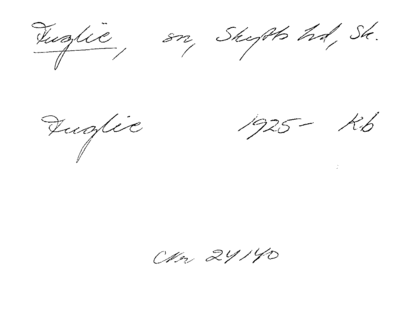 Fuglie, sn, Skytts hd, Sk.
Fuglie 1925- Kb
CNr 24140